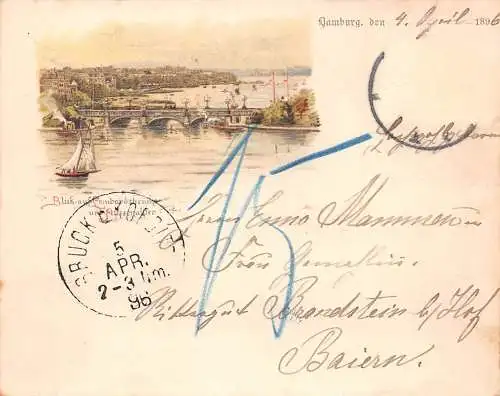 Hamburg, den 4. April 1896
Blick auf Lombardsbrücke
und Alsterpavillon
BRUCKDORF
5
APR.
2-3 Nm.
96
15
Herrn Enno Mammen u
Frau Gemahlin
Rittergut Brandstein b/Hof
Baiern.